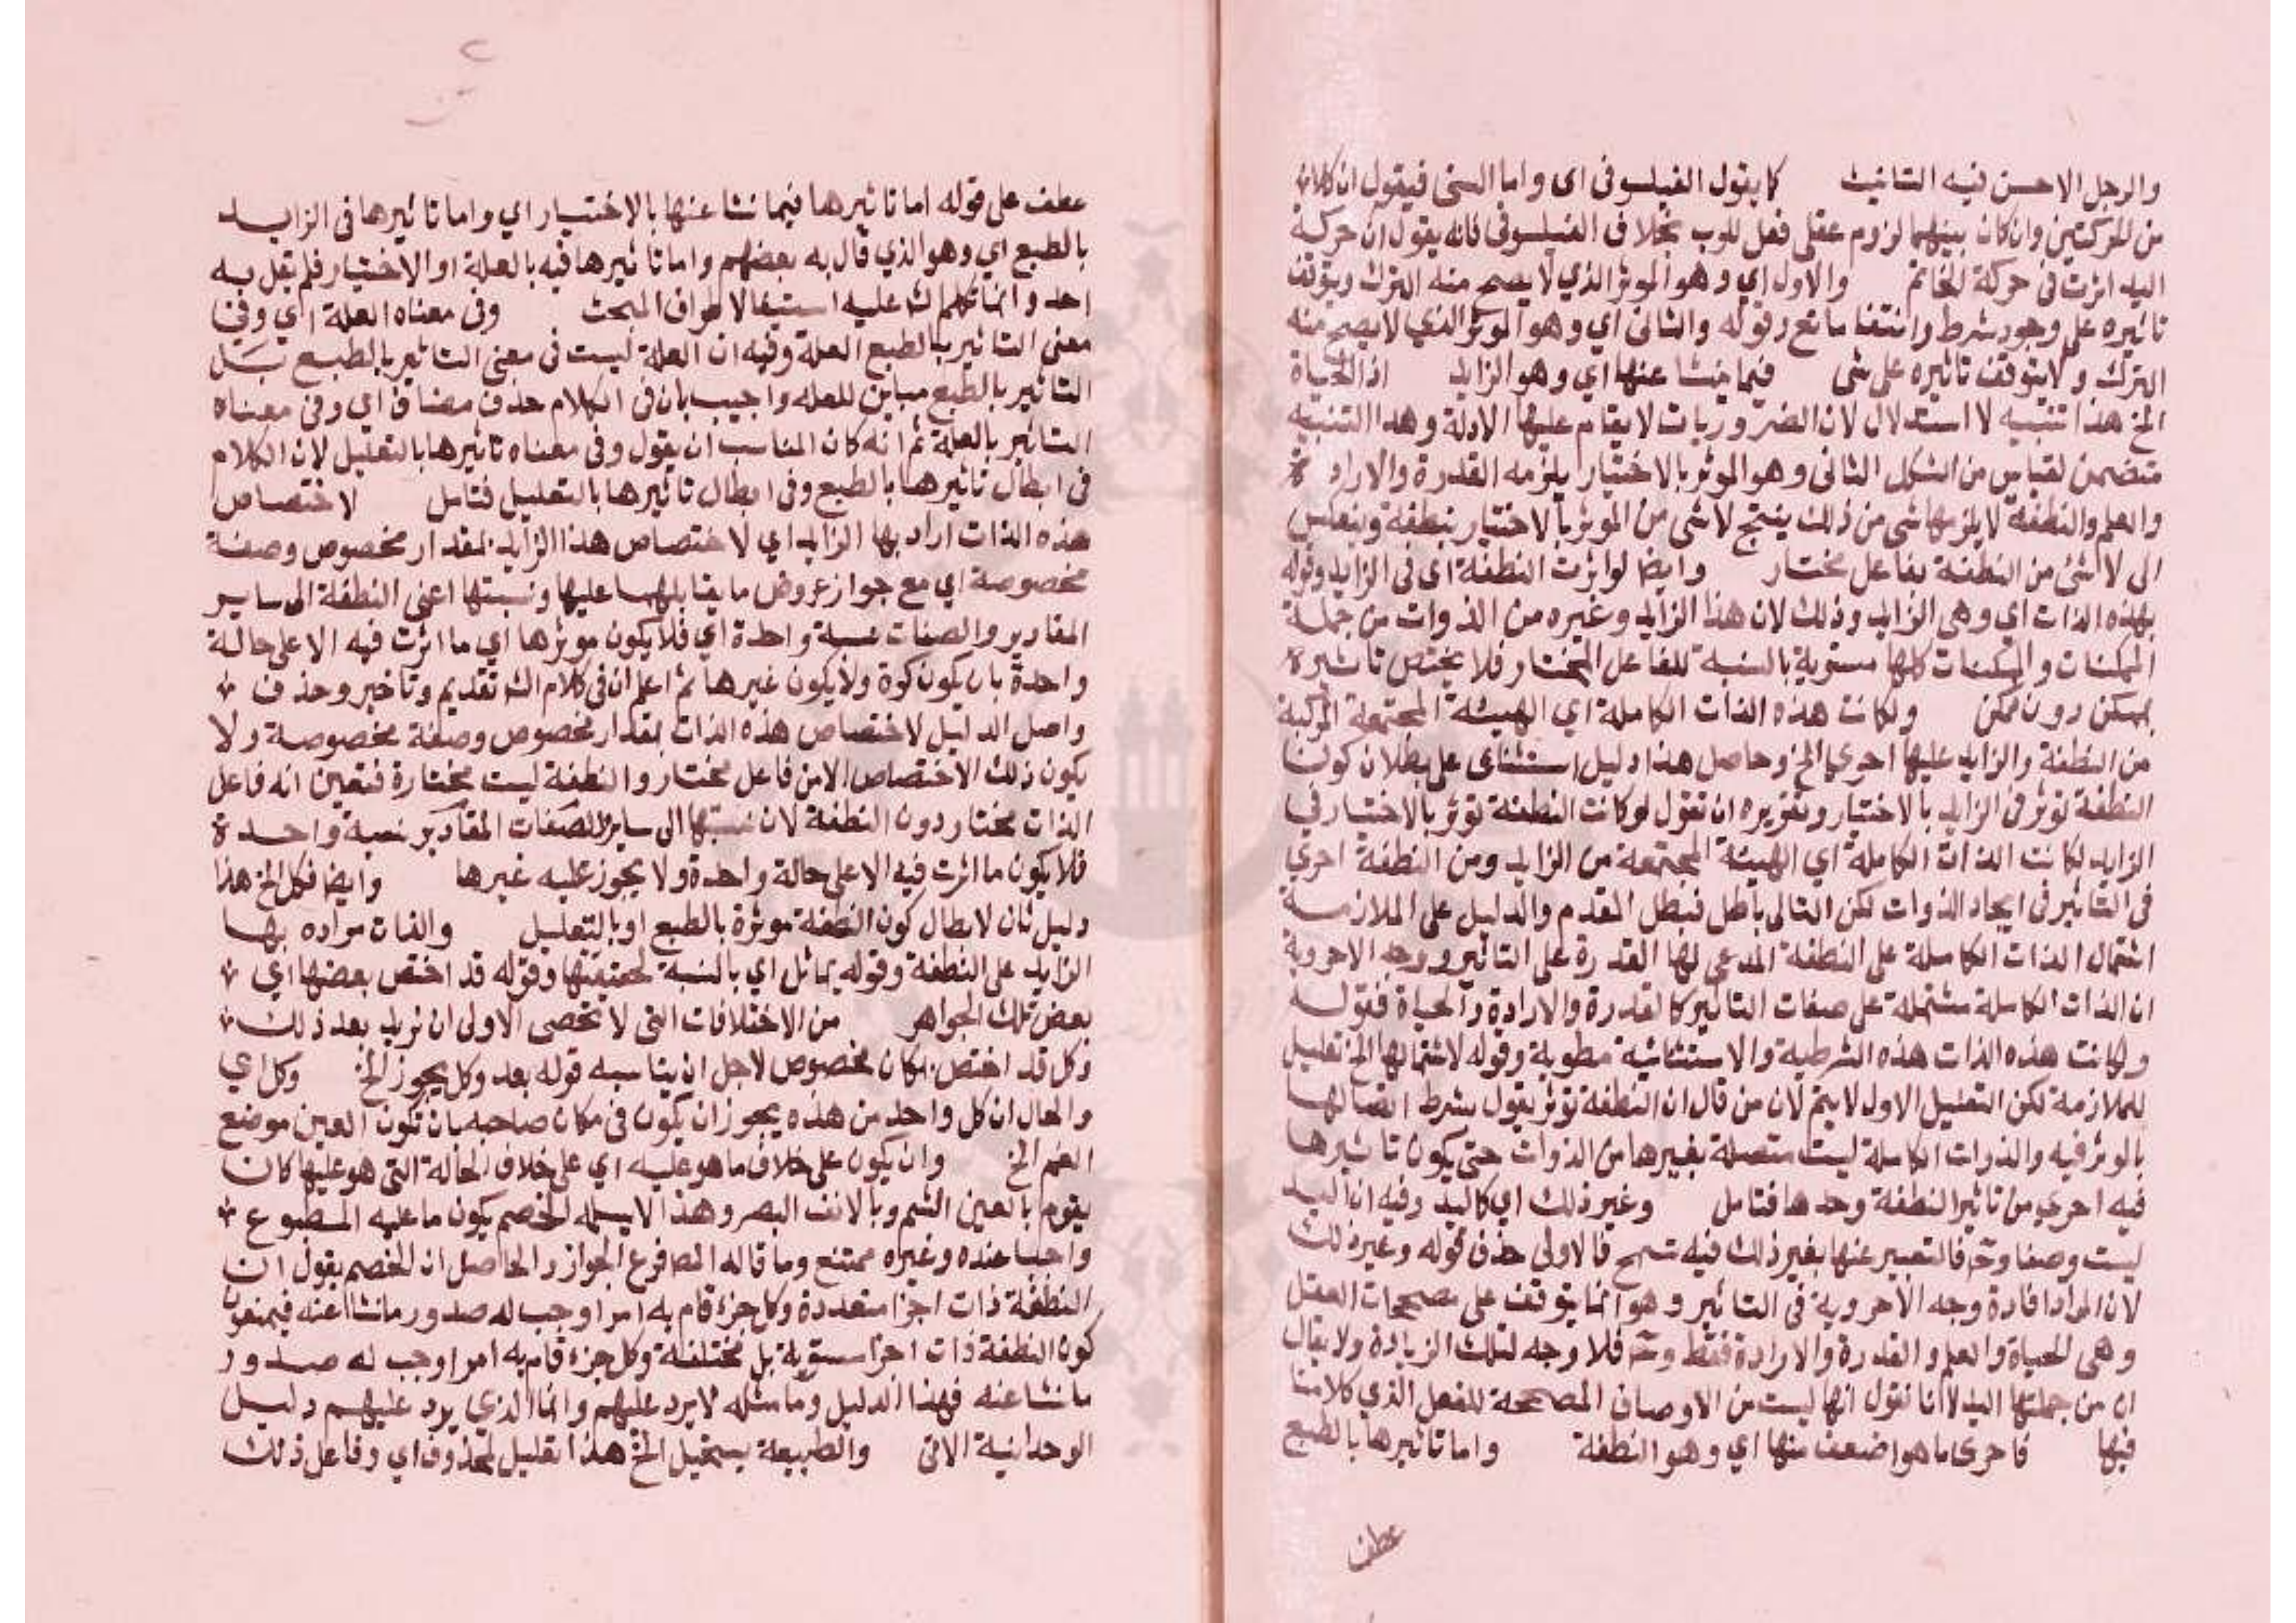 والرجل الاحسن فيه التانيث كما يقول الفيلسوفى اى واما السنى فيقول ان كلا
من الحركتين وان كان بينهما لزوم عقلى فعل للرب بخلاف الفيلسوفى فانه يقول ان حركة
اليد اثرت فى حركة الخاتم والاول اي وهو الموثر الذي لا يصح منه الترك ويتوقف
تاثيره على وجود شرط وانتفا مانع وقوله والثانى اي وهو الموثر الذي لا يصح منه
الترك ولا يتوقف تاثيره على شى فيما ينشا عنها اي وهو الزايد اذ الحياة
الخ هذا تنبيه لا استدلال لان الضروريات لا يقام عليها الادلة وهذا التنبيه
متضمن لقياس من الشكل الثانى وهو الموثر بالاختيار يلزمه القدرة والاراد ة
والعلم والنطفة لا يلزمها شى من ذلك ينتج لا شى من الموثر بالاختيار بنطفة وينعكس
الى لا شئ من النطفة بفاعل مختار وايضا لو اثرت النطفة اى فى الزايد وقوله
بهذه الذات اي وهى الزايد وذلك لان هذا الزايد وغيره من الذوات من جملة
الممكنات والممكنات كلها مستوية بالنسبة للفاعل المختار فلا يختص تاثيره
بممكن دون ممكن ولكانت هذه الذات الكاملة اي الهيئة المجتمعة المركبة
من النطفة والزايد عليها احري الخ وحاصل هذا دليل استثناى على بطلان كون
النطفة توثر فى الزايد بالاختيار وتقريره ان تقول لو كانت النطفة توثر بالاختيار فى
الزايد لكانت الذات الكاملة اي الهيئة المجتمعة من الزايد ومن النطفة احري
فى التاثير فى ايجاد الذوات لكن التالى باطل فبطل المقدم والدليل على الملازمة
اشتمال الذات الكاملة على النطفة المدعى لها القدرة على التاثير ووجه الاحروية
ان الذات الكاملة مشتملة على صفات التاثير كالقدرة والارادة والحياة فقوله
ولكانت هذه الذات هذه الشرطية والاستثنائية مطوية وقوله لاشتمالها الخ تعليل
للملازمة لكن التعليل الاول لا يتم لان من قال ان النطفة توثر يقول بشرط اتصالها
بالموثر فيه والذوات الكاملة ليست متصلة بغيرها من الذوات حتى يكون تاثيرها
فيه احري من تاثير النطفة وحدها فتامل وغير ذلك اي كاليد وفيه ان اليد
ليست وصفا وح فالتعبير عنها بغير ذلك فيه تسمح فالاولى حذف قوله وغير ذلك
لان المراد افادة وجه الاحروية فى التاثير وهو انما يتوقف على مصححات العقل
وهى الحياة والعلم والقدرة والارادة فقط وح فلا وجه لتلك الزيادة ولا يقال
ان من جملتها اليد لانا نقول انها ليست من الاوصاف المصححة للفعل الذي كلامنا
فيها فاحرى ما هو اضعف منها اي وهو النطفة واما تاثيرها بالطبع
عطف
عطف على قوله اما تاثيرها فيما نشا عنها بالاختيار اي واما تاثيرها فى الزايد
بالطبع اي وهو الذي قال به بعضهم واما تاثيرها فيه بالعلة او الاختيار فلم يقل به
احد وانما تكلم الش عليه استيفا لاطراف المبحث وفى معناه العلة اي وفى
معنى التاثير بالطبع العلة وفيه ان العلة ليست فى معنى التاثير بالطبع بل
التاثير بالطبع مباين للعلة واجيب بان فى الكلام حذف مضاف اي وفى معناه
التاثير بالعلة ثم انه كان المناسب ان يقول وفى معناه تاثيرها بالتعليل لان الكلام
فى ابطال تاثيرها بالطبع وفى ابطال تاثيرها بالتعليل فتامل لاختصاص
هذه الذات اراد بها الزايد اي لاختصاص هذا الزايد بمقدار مخصوص وصفة
مخصوصة اي مع جواز عروض ما يقابلهما عليها ونسبتها اعنى النطفة الى ساير
المقادير والصفات نسبة واحدة اي فلا يكون موثرها اي ما اثرت فيه الا على حالة
واحدة بان يكون كرة ولا يكون غيرها ثم اعلم ان فى كلام الش تقديم وتاخير وحذف
واصل الدليل لاختصاص هذه الذات بمقدار مخصوص وصفة مخصوصة ولا
يكون ذلك الاختصاص الا من فاعل مختار والنطفة ليست مختارة فتعين انه فاعل
الذات مختار دون النطفة لان نسبتها الى ساير الصفات المقادير نسبة واحدة
فلا يكون ما اثرت فيه الا على حالة واحدة ولا يجوز عليه غيرها وايضا فكل الخ هذا
دليل ثان لابطال كون النطفة موثرة بالطبع او بالتعليل والذات مراده بها
الزايد على النطفة وقوله يماثل اي بالنسبة لحقيقتها وقوله قد اختص بعضها اي
بعض تلك الجواهر من الاختلافات التى لا تحصى الاولى ان نزيد بعد ذلك
وكل قد اختص بمكان مخصوص لاجل ان يناسبه قوله بعد وكل يجوز الخ وكل اي
والحال ان كل واحد من هذه يجوز ان يكون فى مكان صاحبه بان تكون العين موضع
الفم الخ وان يكون على خلاف ما هو عليه اي على خلاف الحالة التى هو عليها كان
يقوم بالعين الشم وبالانف البصر وهذا لا يسلمه الخصم بكون ما عليه المطبوع
واجبا عنده وغيره ممتنع وما قاله المص فرع الجواز والحاصل ان الخصم يقول ان
النطفة ذات اجزا متعددة وكل جزء قام به امر اوجب له صدور ما نشا عنه فيمنعون
كون النطفة ذات اجزا مستوية بل مختلفة وكل جزء قام به امر اوجب له صدور
ما نشا عنه فهذا الدليل وما مثله لا يرد عليهم وانما الذي يرد عليهم دليل
الوحدانية الاتى والطبيعة يستحيل الخ هذا تعليل لمحذوف اي وفاعل ذلك